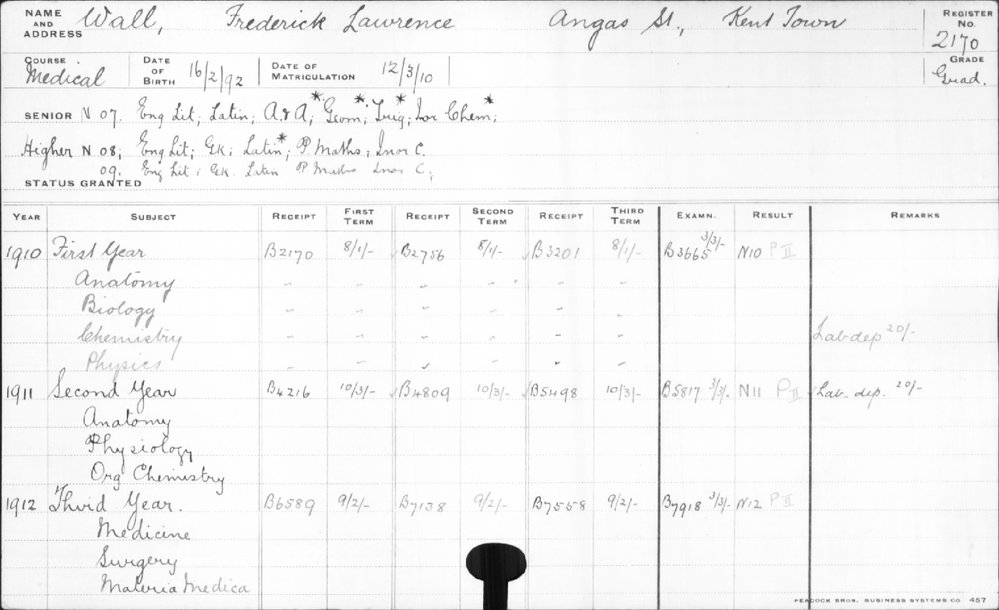 NAME AND ADDRESS Wall, Frederick Lawrence Angas St., Kent Town REGISTER No. 2170
COURSE Medical DATE OF BIRTH 16/2/92 DATE OF MATRICULATION 12/3/10 GRADE Grad.
SENIOR N 07. Eng Lit; Latin; A&A*; Geom*; Trig*; Inor Chem*;
Higher N 08; Eng Lit; Gk; Latin*; P Maths; Inor C.
09. Eng Lit; Gk. Latin P Maths Inor C;
STATUS GRANTED
YEAR SUBJECT RECEIPT FIRST TERM RECEIPT SECOND TERM RECEIPT THIRD TERM EXAMN. RESULT REMARKS
1910 First Year B2170 8/1/- B2756 8/1/- B3201 8/1/- B3665 3/3/- N10 P II
Anatomy " " " " " "
Biology " " " " " "
Chemistry " " " " " " Lab dep 20/-
Physics " " " " "
1911 Second Year B4216 10/3/- B4809 10/3/- B5498 10/3/- B5817 3/3/- N11 P II Lab. dep. 20/-
Anatomy
Physiology
Org Chemistry
1912 Thrid Year. B6589 9/2/- B7138 9/2/- B7558 9/2/- B7918 3/3/- N12 P II
Medicine
Surgery
Materia Medica
PEACOCK BROS. BUSINESS SYSTEMS CO 457